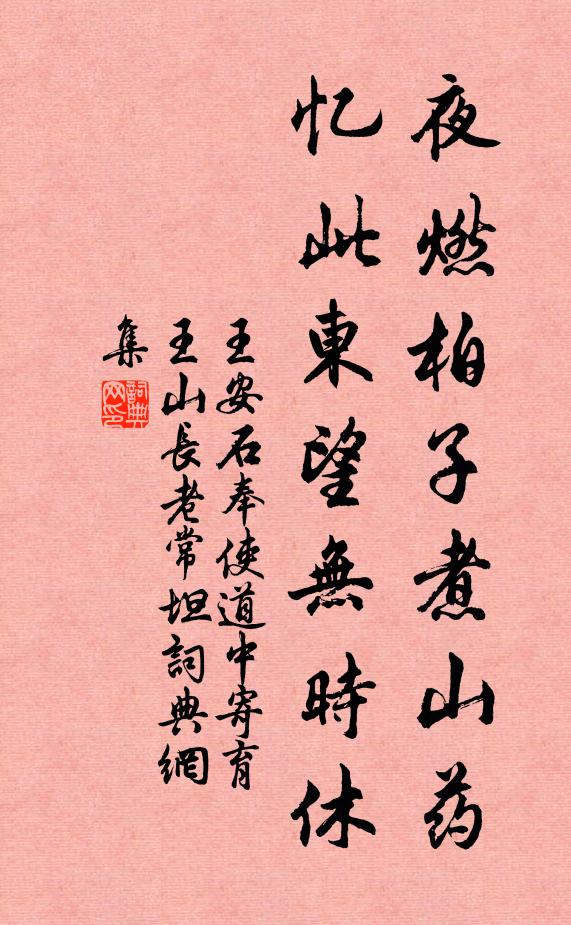 夜燃柏子煮山药
忆此東望無時休
王安石奉使道中寄育
王山長老常坦詞典網
集
詞典网印